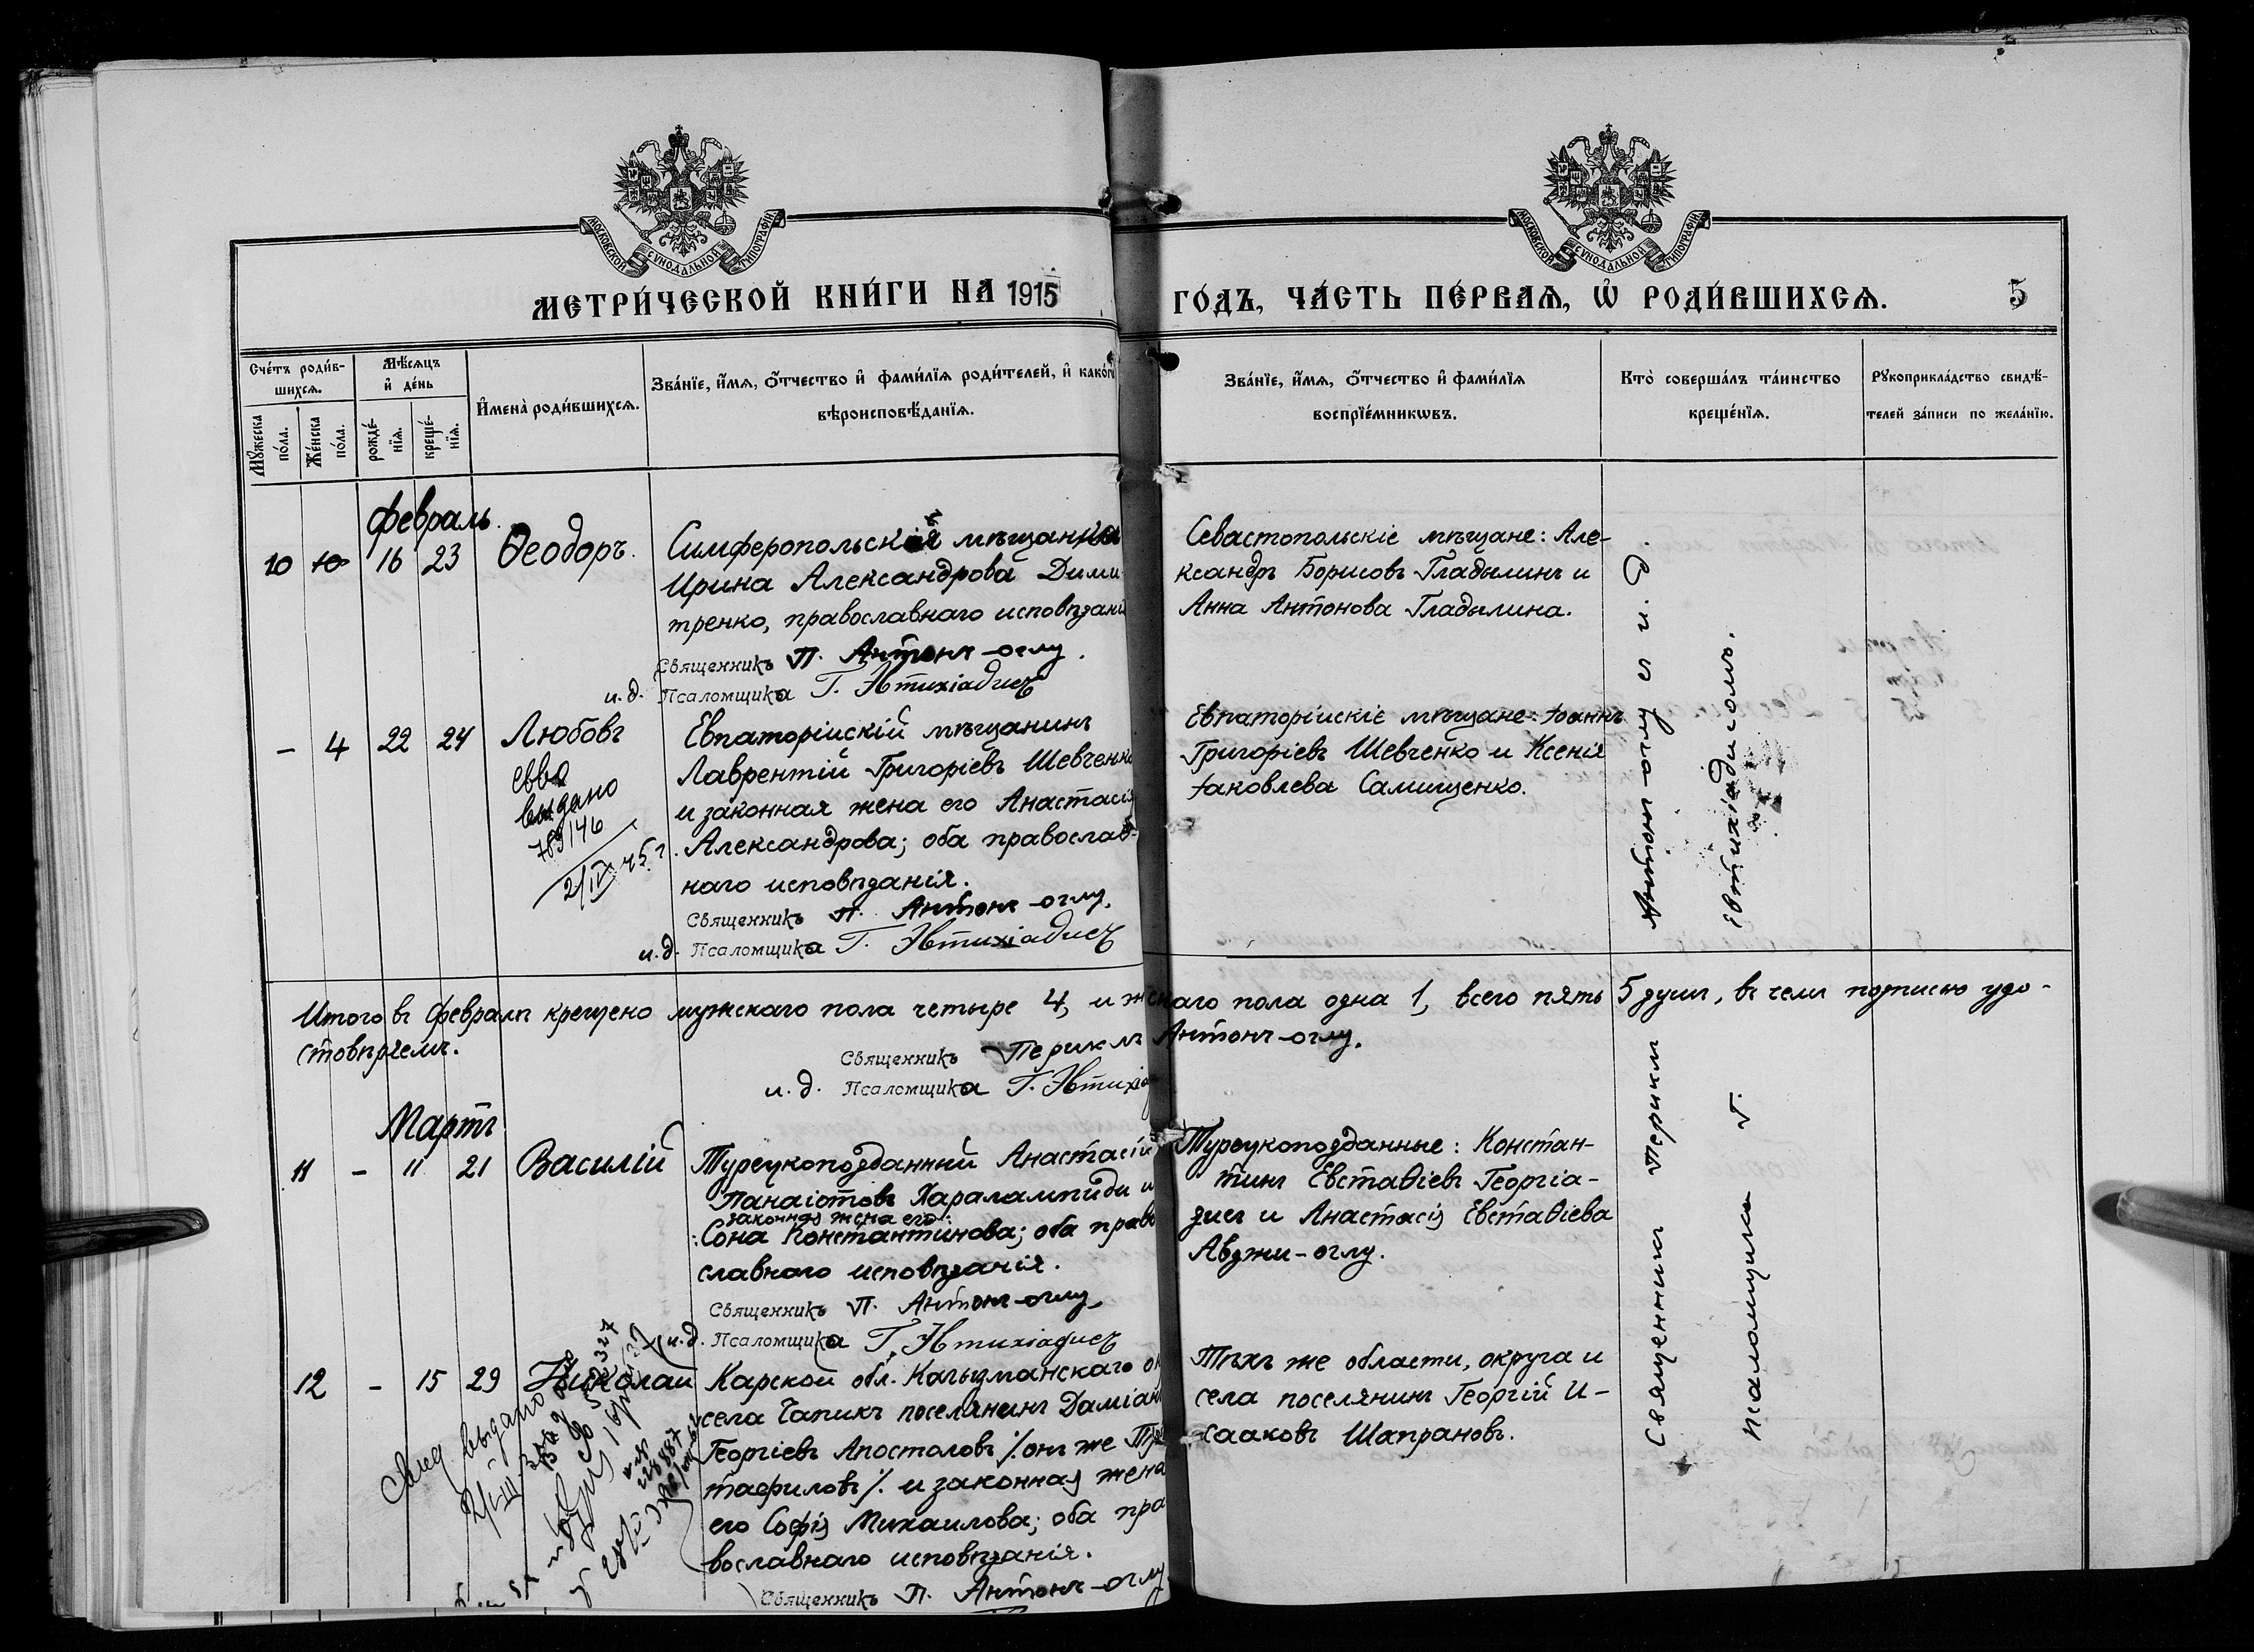 МОСКОВСКОЙ СѴНОДАЛЬНОЙ ТИПОГРАФІИ
МОСКОВСКОЙ СѴНОДАЛЬНОЙ ТИПОГРАФІИ
МЕТРИ́ЧЕСКОЙ КНИ́ГИ НА 1915 ГО́ДЪ, ЧА́СТЬ ПЕ́РВАѦ, Ѡ҆ РОДИ́ВШИХСѦ. 5
Сче́тъ роди́в-
шихсѧ.
Мꙋжеска по́ла.
Же́нска по́ла.
Мѣ́сѧцъ и҆ де́нь
рожде́-
нїѧ.
креще́-
нїѧ.
И҆мена̀ роди́вшихсѧ.
Зва́нїе, и҆́мѧ, ѻ҆́тчество и҆ фами́лїѧ роди́телей, и҆ како́гѡ
вѣроисповѣ́данїѧ.
Зва́нїе, и҆́мѧ, ѻ҆́тчество и҆ фами́лїѧ
воспрїе́мникѡвъ.
Кто̀ соверша́лъ та́инство
креще́нїѧ.
Рꙋкоприкла́дство свидѣ́-
телей за́писи по жела́нїю.
Февраль.
10 10 16 23 Ѳеодоръ.
Симферопольская мѣщанка
Ирина Александрова Дими-
тренко, православнаго исповѣдані
Священникъ П. Антонъ-оглу.
и.д. Псаломщика Г. Эвтихіадисъ
Севастопольскіе мѣщане: Але-
ксандръ Борисовъ Гладылинъ и
Анна Антонова Гладылина.
- 4 22 24 Любовь
выдано
2/IV 45 г.
Евпаторійскій мѣщанинъ
Лаврентій Григоріевъ Шевченко
и законная жена его Анастасія
Александрова; оба православ-
наго исповѣданія.
Священникъ П. Антонъ-оглу.
и.д. Псаломщика Г. Эвтихіадисъ
Евпаторійскіе мѣщане: Іоаннъ
Григоріевъ Шевченко и Ксенія
Іаковлева Самищенко.
Итого въ Февралѣ крещено мужскаго пола четыре 4, и женскаго пола одна 1, всего пять 5 душъ, въ чемъ подписью удо-
стовѣряемъ.
Священникъ Периклъ Антонъ-оглу.
и.д. Псаломщика Г. Эвтихіа
Мартъ
11 - 11 21 Василій
Турецкоподданный Анастасій
Панаіотовъ Харалампиди и
законная жена его:
:Сона Константинова; оба право
славнаго исповѣданія.
Священникъ П. Антонъ-оглу
и.д. Псаломщика Г. Эвтихіадисъ
Турецкоподданные: Констан-
тинъ Евстаѳіевъ Георгіа-
дисъ и Анастасія Евстаѳіева
Авджи-оглу.
12 - 15 29 Николай
выдано
Карской обл. Кагызманскаго ок
села Чапикъ поселянинъ Даміанъ
Георгіевъ Апостоловъ /онъ же Тр
тафиловъ/. и законная жена
его Софія Михаилова; оба пра
вославнаго исповѣданія.
Священникъ П. Антонъ-оглу
Тѣхъ же области, округа и
села поселянинъ Георгій И-
сааковъ Шапрановъ.
Священникъ Периклъ Антонъ-оглу и и.д.
псаломщика Г. Евтихіадисомъ.